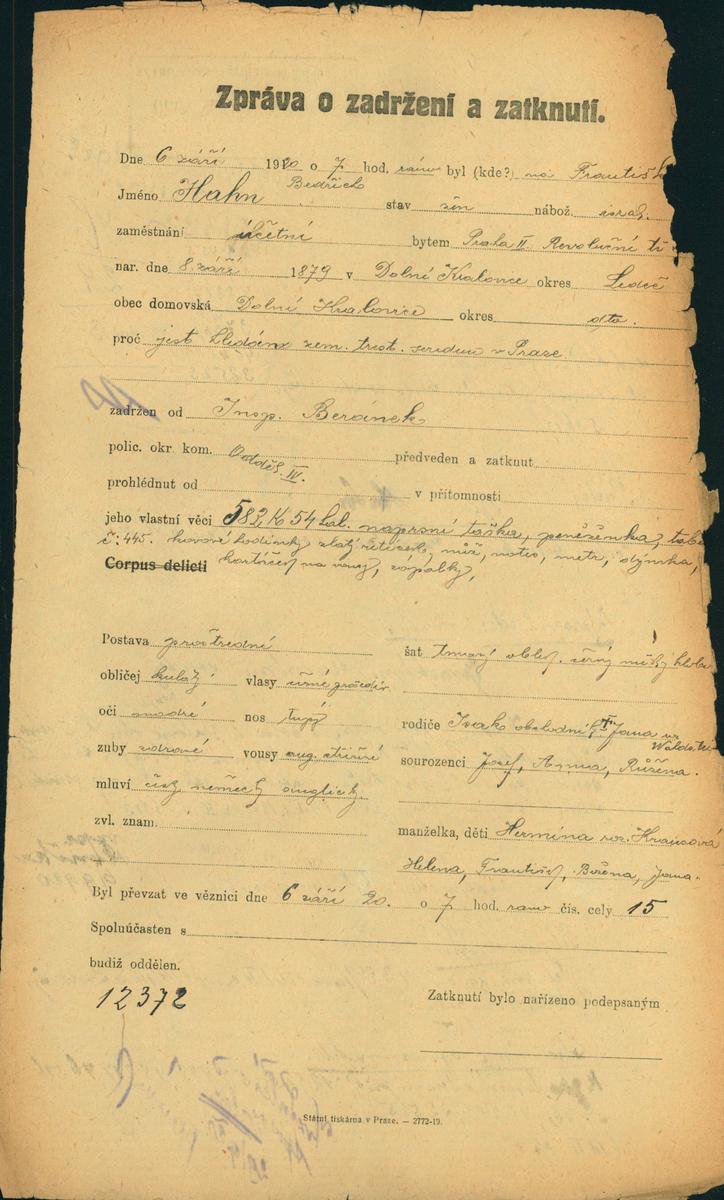 Zpráva o zadržení a zatknutí.
Dne 6 září 1920 o 7 hod. ráno byl (kde?) na Františk
Jméno Hahn Bedřich stav žen nábož. israel.
zaměstnání účetní bytem Praha II Revoluční tř
nar. dne 8. září 1879 v Dolní Kralovice okres Ledeč
obec domovská Dolní Kralovice okres dto.
proč jest hledán zem. trest. soudem v Praze
zadržen od Insp. Beránek
polic. okr. kom. Odděl. IV. předveden a zatknut
prohlédnut od v přítomnosti
jeho vlastní věci 582 K 54 hal. náprsní taška, peněženka, tob
č: 445. kovové hodinky zlatý řetízek, nůž, notes, metr, dýmka,
Corpus delicti kartáček na vousy, zápalky,
Postava prostřední šat tmavý oblek, měký klobo
obličej kulatý vlasy černé
oči modré nos tupý rodiče Isak obchodník Jana
zuby zdravé vousy ang. střižené sourozenci Josef, Anna, Růžena.
mluví česky německy anglicky
zvl. znam. manželka, děti Hermina roz. Krausová
Helena, František, Božena, Jana.
Byl převzat ve věznici dne 6 září 20. o 7 hod. ráno čís. cely 15
Spoluúčasten s
budiž oddělen.
12372 Zatknutí bylo nařízeno podepsaným
Státní tiskárna v Praze. — 2772-19.